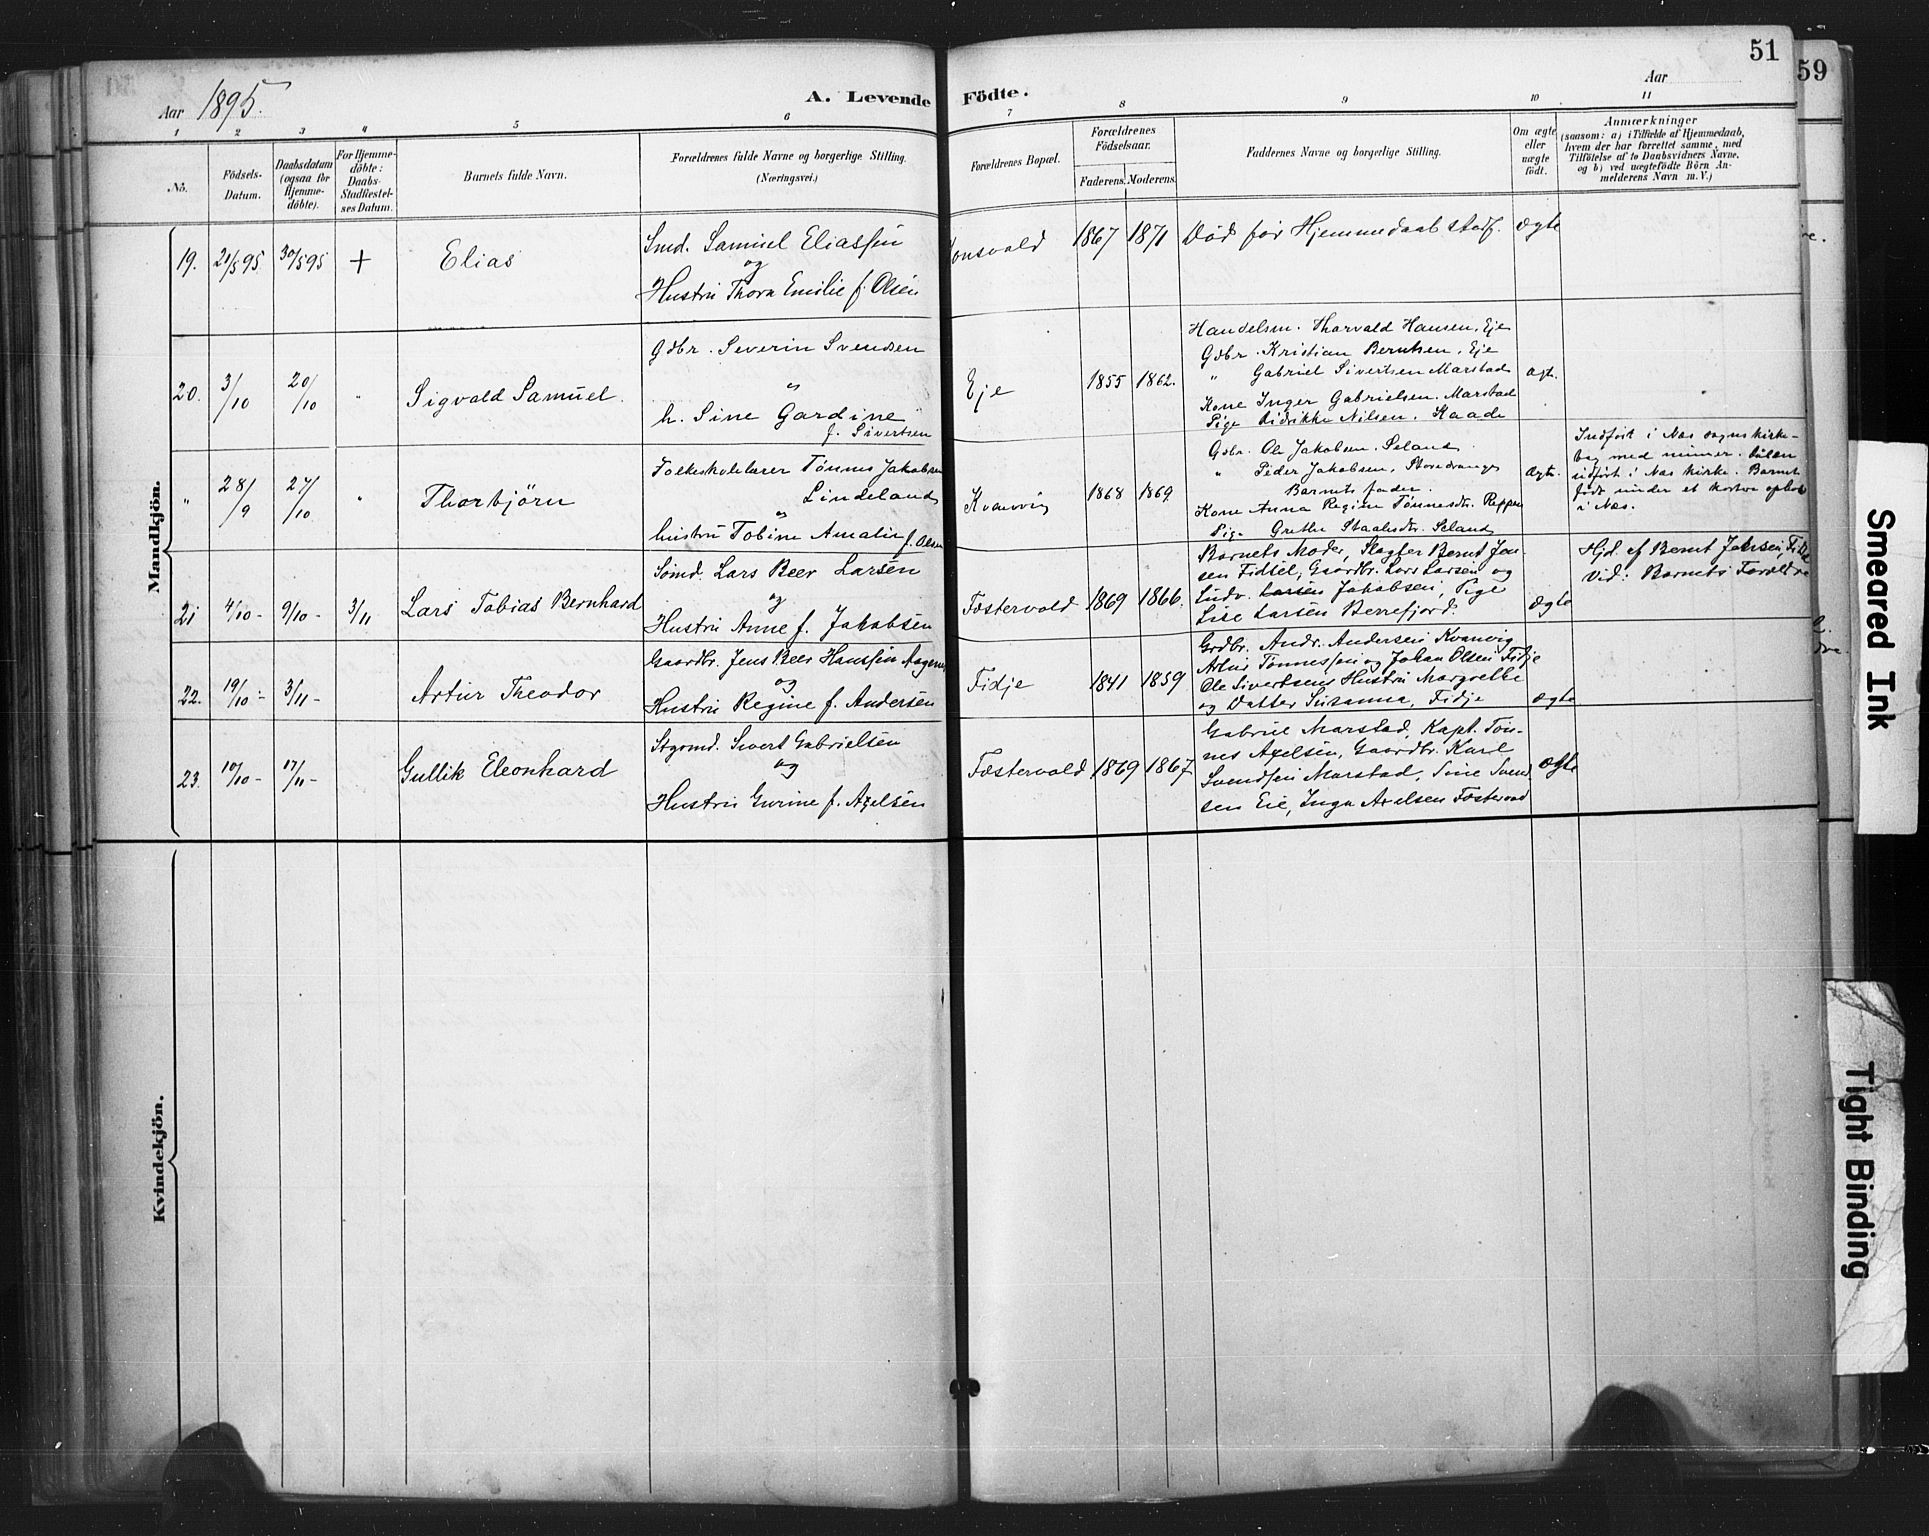 51
59
Aar 1895.
A. Levende Födte.
Aar
1 2 3 4 5 6 7 8 9 10 11
No.
Födsels-
Datum.
Daabsdatum
(ogsaa for
Hjemme-
döbte).
For Hjemme-
döbte:
Daabs-
Stadfæstel-
ses Datum.
Barnets fulde Navn.
Forældrenes fulde Navne og borgerlige Stilling.
(Næringsvei.)
Forældrenes Bopæl.
Forældrenes
Födselsaar.
Faderens. Moderens.
Faddernes Navne og borgerlige Stilling.
Om ægte
eller
uægte
født.
Anmærkninger
(saasom: a) i Tilfælde af Hjemmedaab,
hvem der har forrettet samme, med
Tilføielse af to Daabsvidners Navne,
og b) ved uægtefødte Börn An-
melderens Navn m. V.)
Mandkjön.
19. 21/5 95 30/5 95 + Elias
Smd. Samuel Eliassen
og
Hustru Thora Emilie f. Olsen
onsvold 1867 1871 Død før Hjemmedaab stadf. ægte
20. 3/10 20/10 " Sigvald Samuel.
Gdbr. Severin Svendsen
"
h. Sine Gardine
f. Sivertsen
Eje 1855 1862.
Handelsm. Thorvald Hansen, Eje
Gdbr. Kristian Berntsen, Eje
" Gabriel Sivertsen Marstad
Kone Inger Gabrielsen. Marstad
Pige Didrikke Nilsen. Kaade
ægt.
" 28/9 27/10 " Thorbjörn
Folkeskolelærer Tönnes Jakobsen
Lindeland
og
hustru Tobine Amalie f. Olsen
Kvanvig 1868 1869
Gdbr. Ole Jakobsen. Seland
" Peder Jakobsen, Storedrange
Barnets fader.
Kone Anna Regine Tønnesdtr. Reppen
Pige Grethe Staalesdtr. Seland
ægt.
Indført i Næs sognskirke-
bog med numer.
udført i Næs kirke. Barnet
født under et kortere ophold
i Næs.
21 4/10- 9/10- 3/11 Lars Tobias Bernhard
Sømd. Lars Beer Larsen
og
Hustru Anne f. Jakobsen
Fostervold 1869 1866.
Barnets Moder, Slagter Bernt Jen-
sen Fidsel, Gaardbr. Lars Larsen og
Ludv. Larsen Jakobsen, Pige
Lise Larsen Berrefjord.
ægte
Hjd. af Bernt Jensen,
Vid: Barnets Forældre
22. 19/10- 3/11- Artur Theodor
Gaardbr. Jens Beer Hanssen
og
Hustru Regine f. Andersen
Fidje 1841 1859
Grdbr. Andr. Andersen Kvanvig
Artur Tønnessen og Johan Olsen Fidje
Ole Sivertsens Hustru Margrethe
og Datter Susanna, Fidje
ægte
23. 10/10- 17/11- Gullik Eleonhard
Stgrmd. Sivert Gabrielsen
og
Hustru Gurine f. Axelsen
Fostervold 1869 1867
Gabriel Marstad, Kapt. Tön-
nes Axelsen, Gaardbr. Karl
Svendsen Marstad, Sine Svend
sen Eie, Inga Axelsen Fostervold
ægte
Kvindekjön.
Smeared Ink
Tight Binding